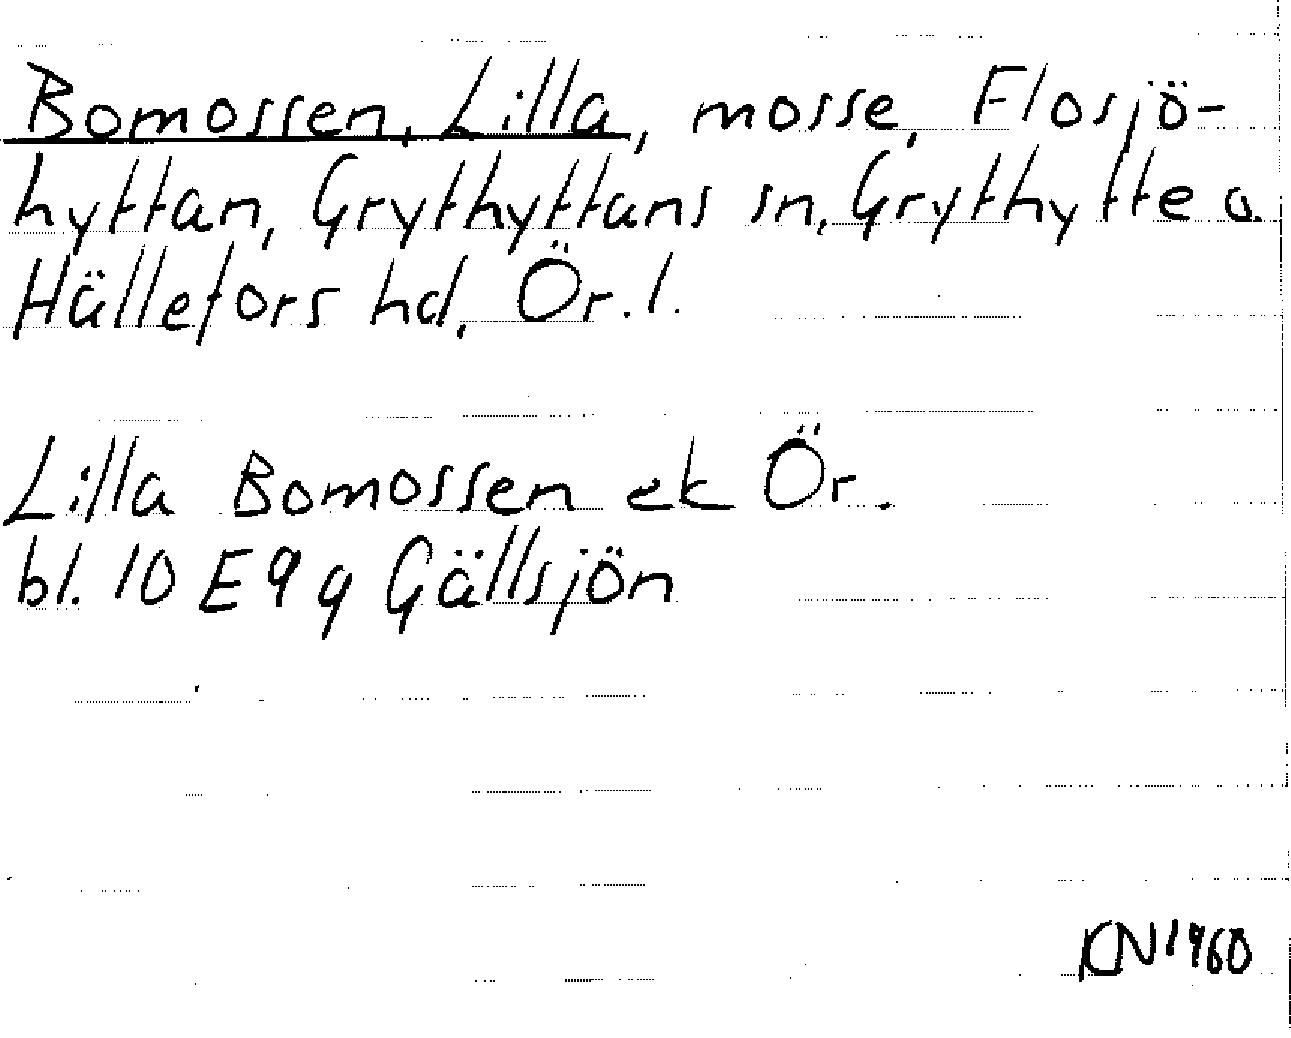 Bomossen, Lilla, mosse, Flosjö-
hyttan, Grythyttans sn, Grythytte o.
Hällefors hd, Ör. l.
Lilla Bomossen ek Ör.
bl. 10 E 9 g Gällsjön
KN 1960